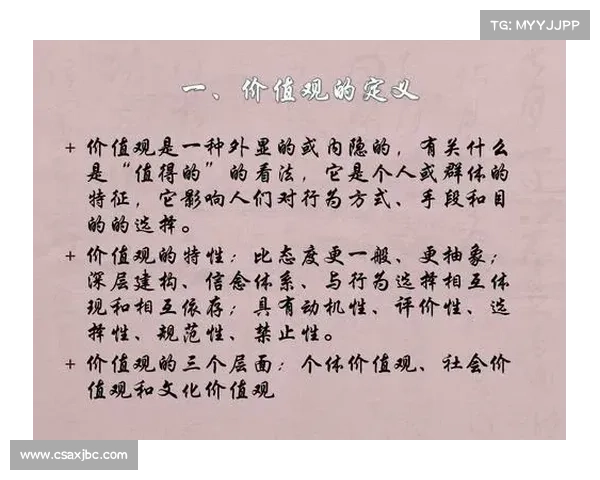 TG: MYYJJPP
一、价值观的定义
+ 价值观是一种外显的或内隐的，有关什么
是“值得的”的看法，它是个人或群体的
特征，它影响人们对行为方式、手段和目
的的选择。
+ 价值观的特性：比态度更一般、更抽象；
深层建构、信念体系、与行为选择相互体
现和相互依存；具有动机性、评价性、选
择性、规范性、禁止性。
+ 价值观的三个层面：个体价值观、社会价
值观和文化价值观
www.csaxjbc.com